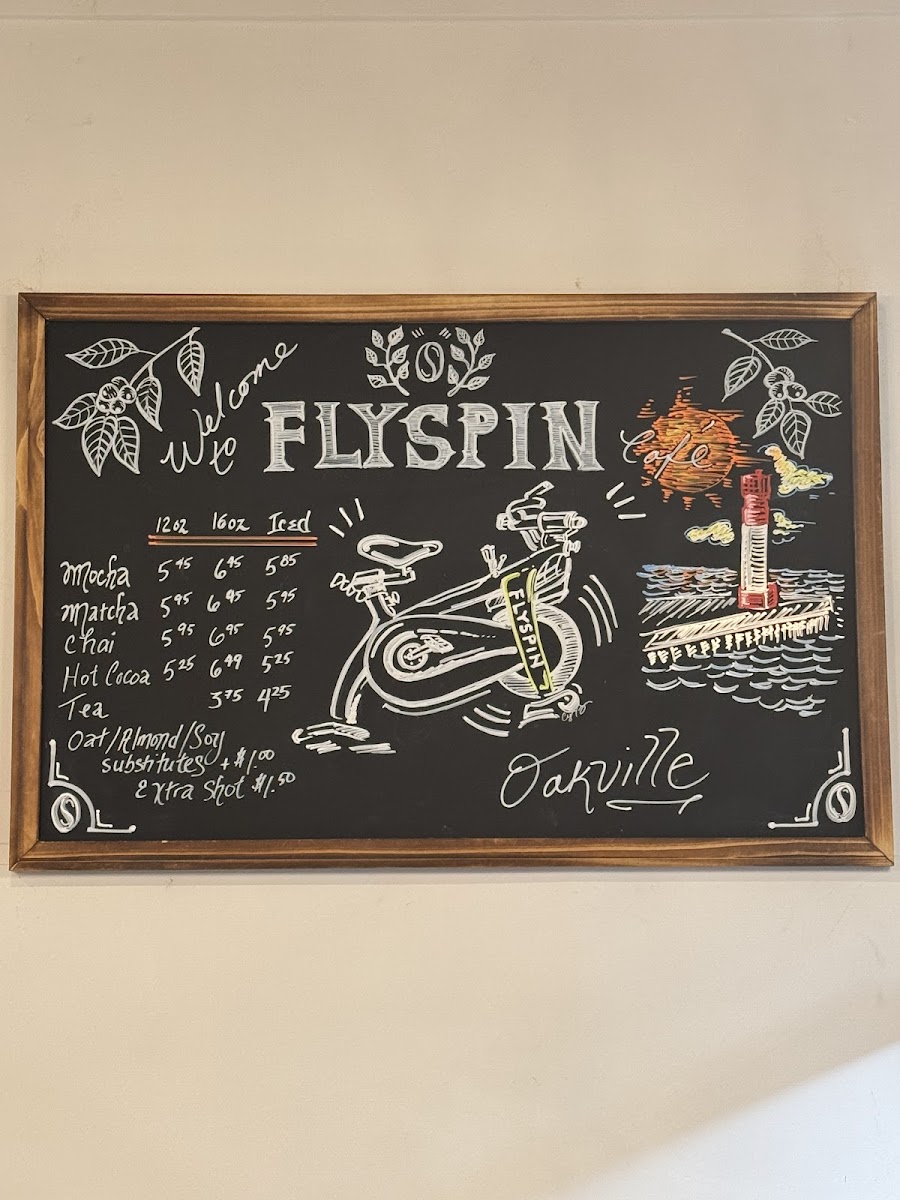 Welcome
to FLYSPIN Café
12oz 16oz Iced
Mocha 5.95 6.95 5.85
Matcha 5.95 6.95 5.95
Chai 5.95 6.95 5.95
Hot Cocoa 5.25 6.49 5.25
Tea 3.75 4.25
Oat/Almond/Soy
substitutes + $1.00
Extra Shot $1.50
FLYSPIN
Oakville